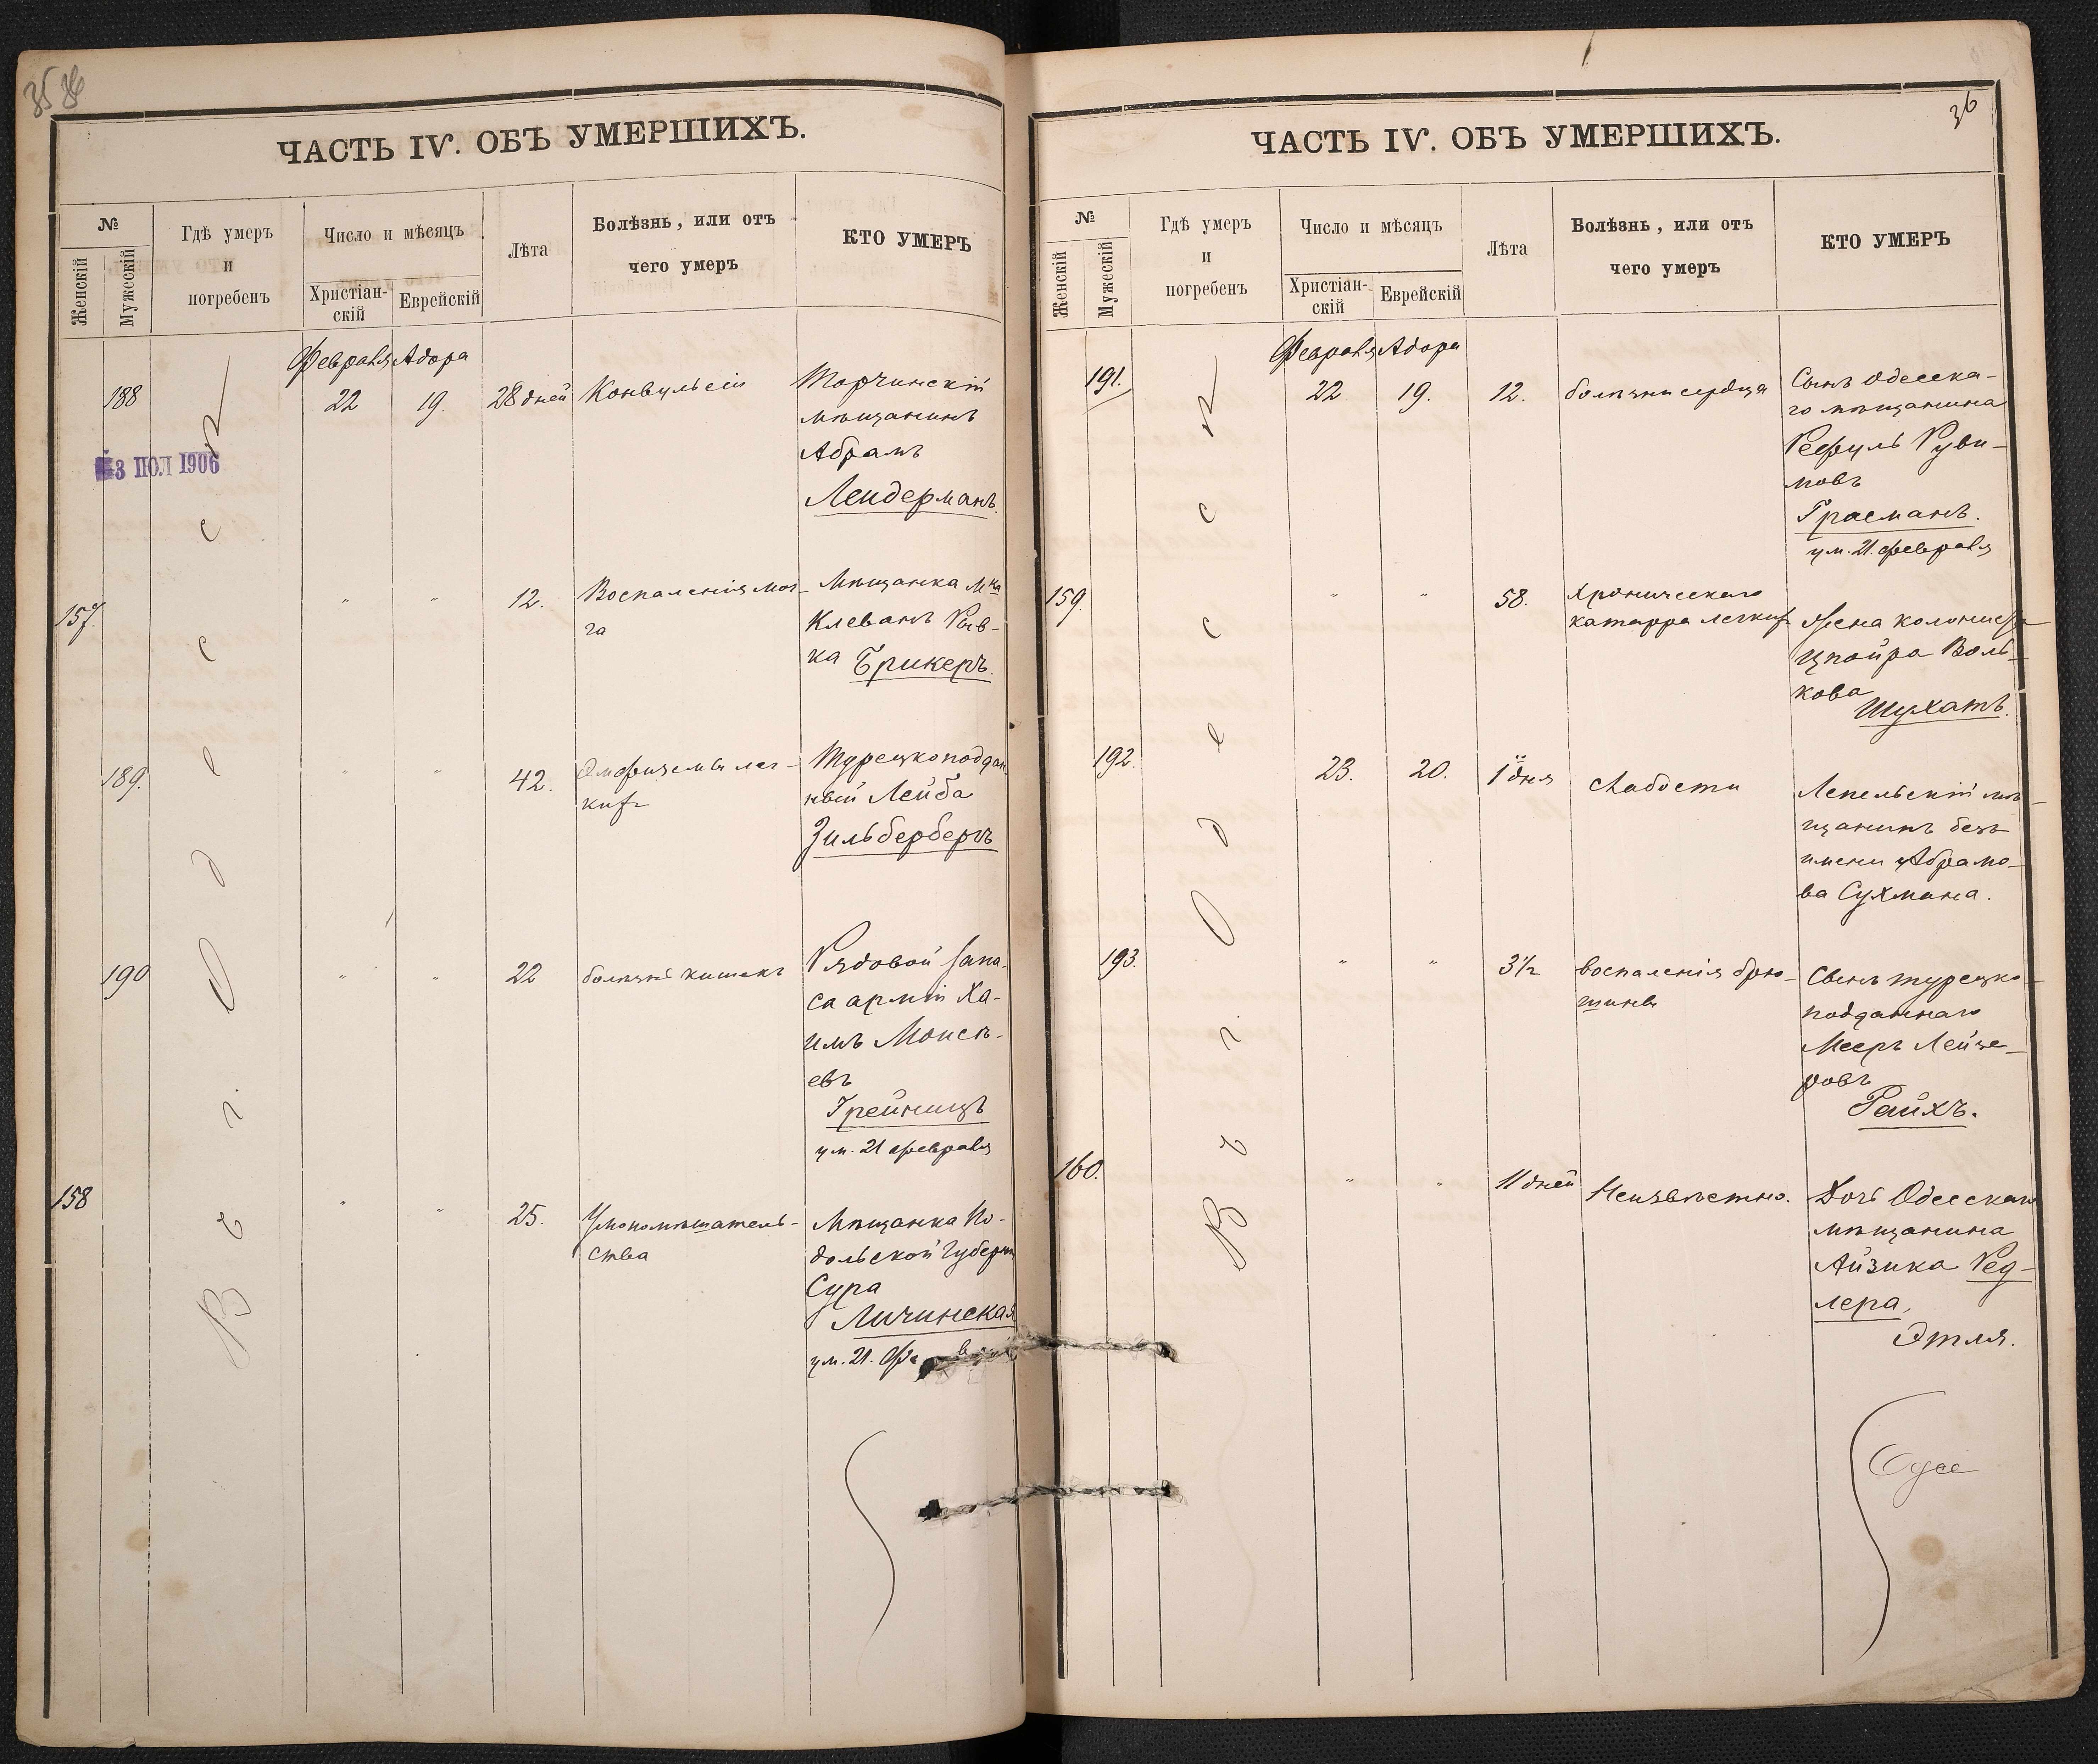 35 36
ЧАСТЬ IV. ОБЪ УМЕРШИХЪ.
№
Женскій
Мужескій
Гдѣ умеръ
и
погребенъ
Число и мѣсяцъ
Христіан-
скій
Еврейскій
Лѣта
Болѣзнь, или отъ
чего умеръ
КТО УМЕРЪ
Въ г. Одессѣ
Февраля Адора
188 22 19. 28 дней Конвульсіи Торчинскій
мѣщанинъ
Абрамъ
Лендерманъ.
3 ІЮЛ 1906
157. " " 12. Воспаленія моз-
га
Мѣщанка м-ка
Клевань Рив-
ка Брикеръ.
189. " " 42. Эмфиземы лег-
кихъ
Турецкоподдан
ный Лейба
Зильбербергъ
190 " " 22 болѣзнь кишекъ Рядовой запа-
са арміи Ха-
имъ Моисѣ-
евъ
Грейницъ
ум. 21 февраля
158 " " 25. Умопомѣшатель-
ства
Мѣщанка По-
дольской губерніи
Сура
Личинская
ум. 21.
36
ЧАСТЬ IV. ОБЪ УМЕРШИХЪ.
№
Женскій
Мужескій
Гдѣ умеръ
и
погребенъ
Число и мѣсяцъ
Христіан-
скій
Еврейскій
Лѣта
Болѣзнь, или отъ
чего умеръ
КТО УМЕРЪ
Въ г. Одессѣ
Февраля Адора
191. 22 19. 12. болѣзни сердца Сынъ Одесска-
го мѣщанина
Рефуль Руви-
мовъ
Грасманъ.
ум. 21. февраля
159. " " 58. Хроническаго
катарра легкихъ
Жена колониста
Цпойра Воль-
кова
Шухатъ.
192. 23. 20. 1 дня слабости Лепельскій мѣ-
щанинъ безъ
имени Абрамо-
ва Сухмана.
193. " " 3½ воспаленія брю-
шины
Сынъ турецко-
подданнаго
Мееръ Лейзе-
ровъ
Райхъ.
160. " " 11 дней Неизвѣстно. Дочь Одесскаго
мѣщанина
Айзика Ред-
лера,
Этля.
Одес